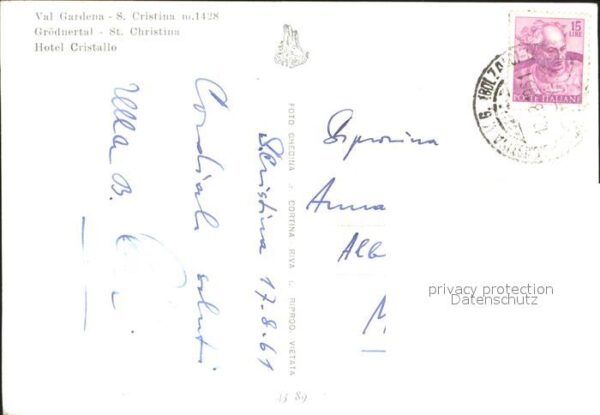 Val Gardena - S. Cristina m.1428
Grödnertal - St. Christina
Hotel Cristallo
Cordiali saluti
Ulla B.
S. Cristina 17.8.61
FOTO GHEDINA - CORTINA RIVA RIPROD. VIETATA
15
LIRE
POSTE ITALIANE
(BOLZANO)
Signorina
Anna
Alb
M
privacy protection
Datenschutz
13 89